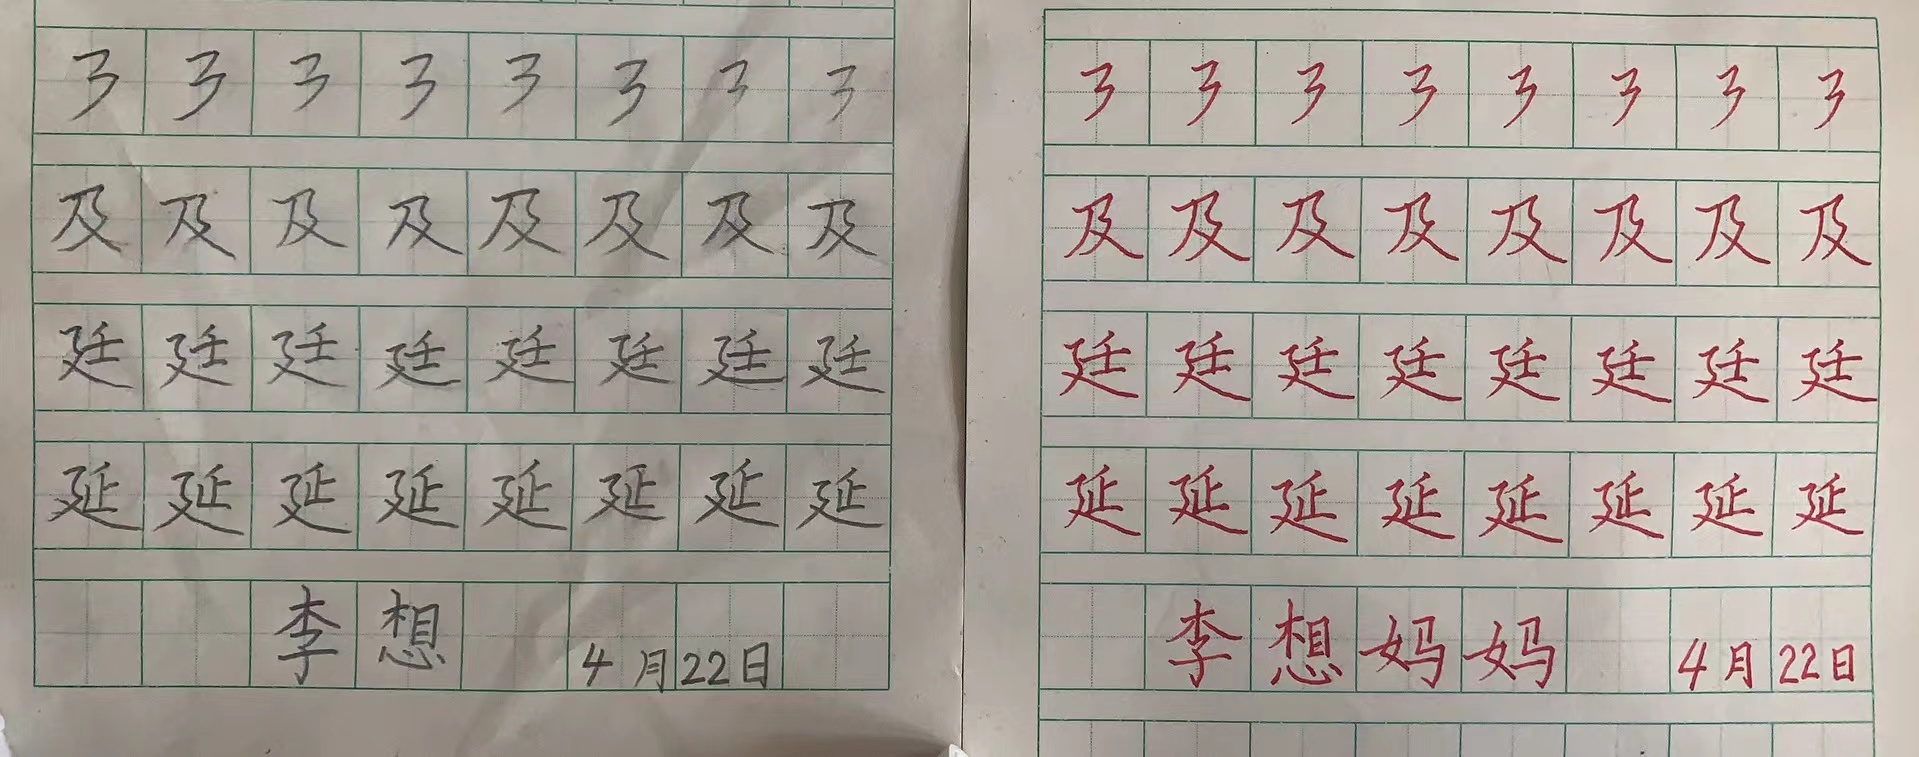 ㇋㇋㇋㇋㇋㇋㇋㇋
及及及及及及及及
廷廷廷廷廷廷廷廷
延延延延延延延延
李想 4月22日
㇋㇋㇋㇋㇋㇋㇋㇋
及及及及及及及及
廷廷廷廷廷廷廷廷
延延延延延延延延
李想妈妈 4月22日